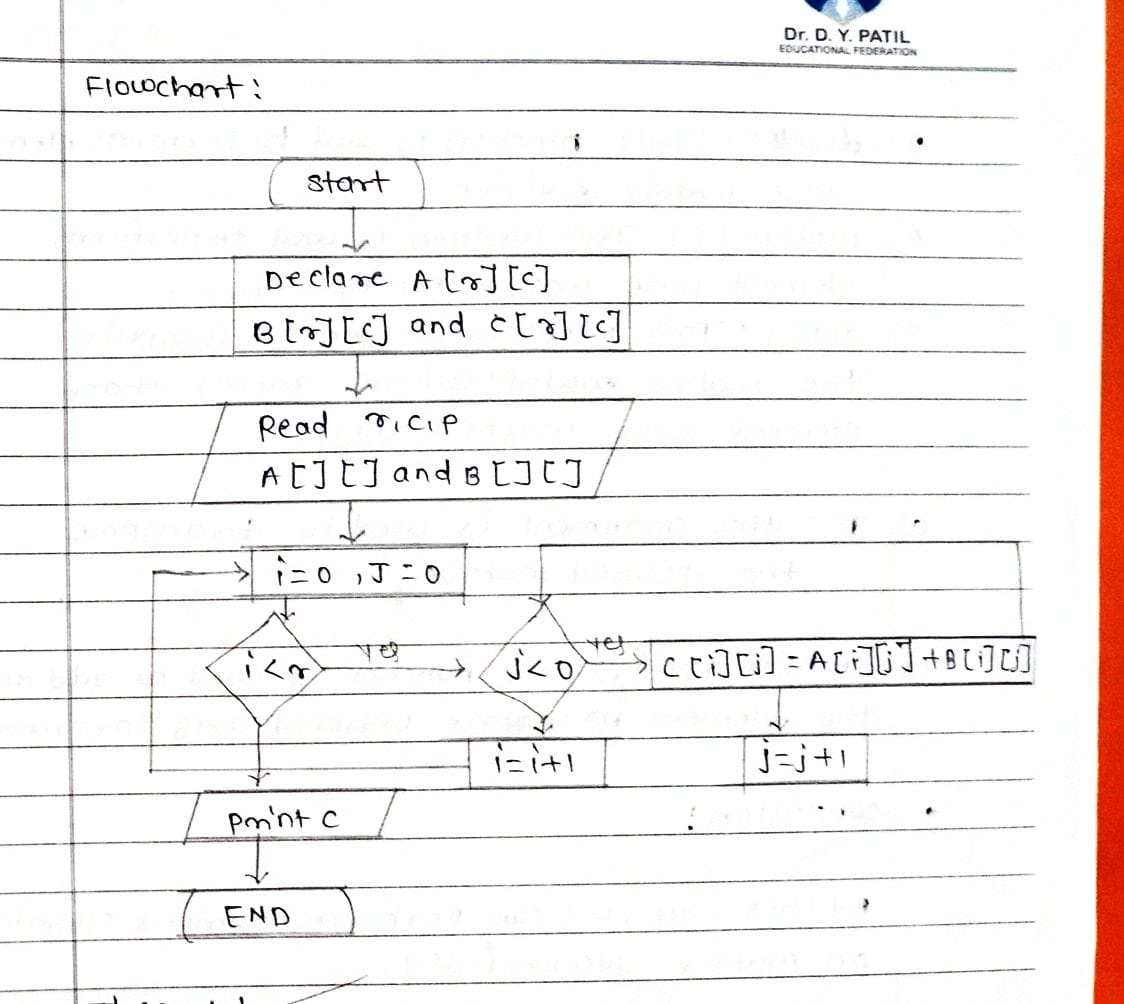 Dr. D. Y. PATIL
EDUCATIONAL FEDERATION
Flowchart:
start
Declare A[r][c]
B[r][c] and C[r][c]
Read r,c,p
A[][] and B[][]
i=0, J=0
i<r
yes
j<0
yes
C[i][j] = A[i][j] + B[i][j]
i=i+1
j=j+1
Print C
END